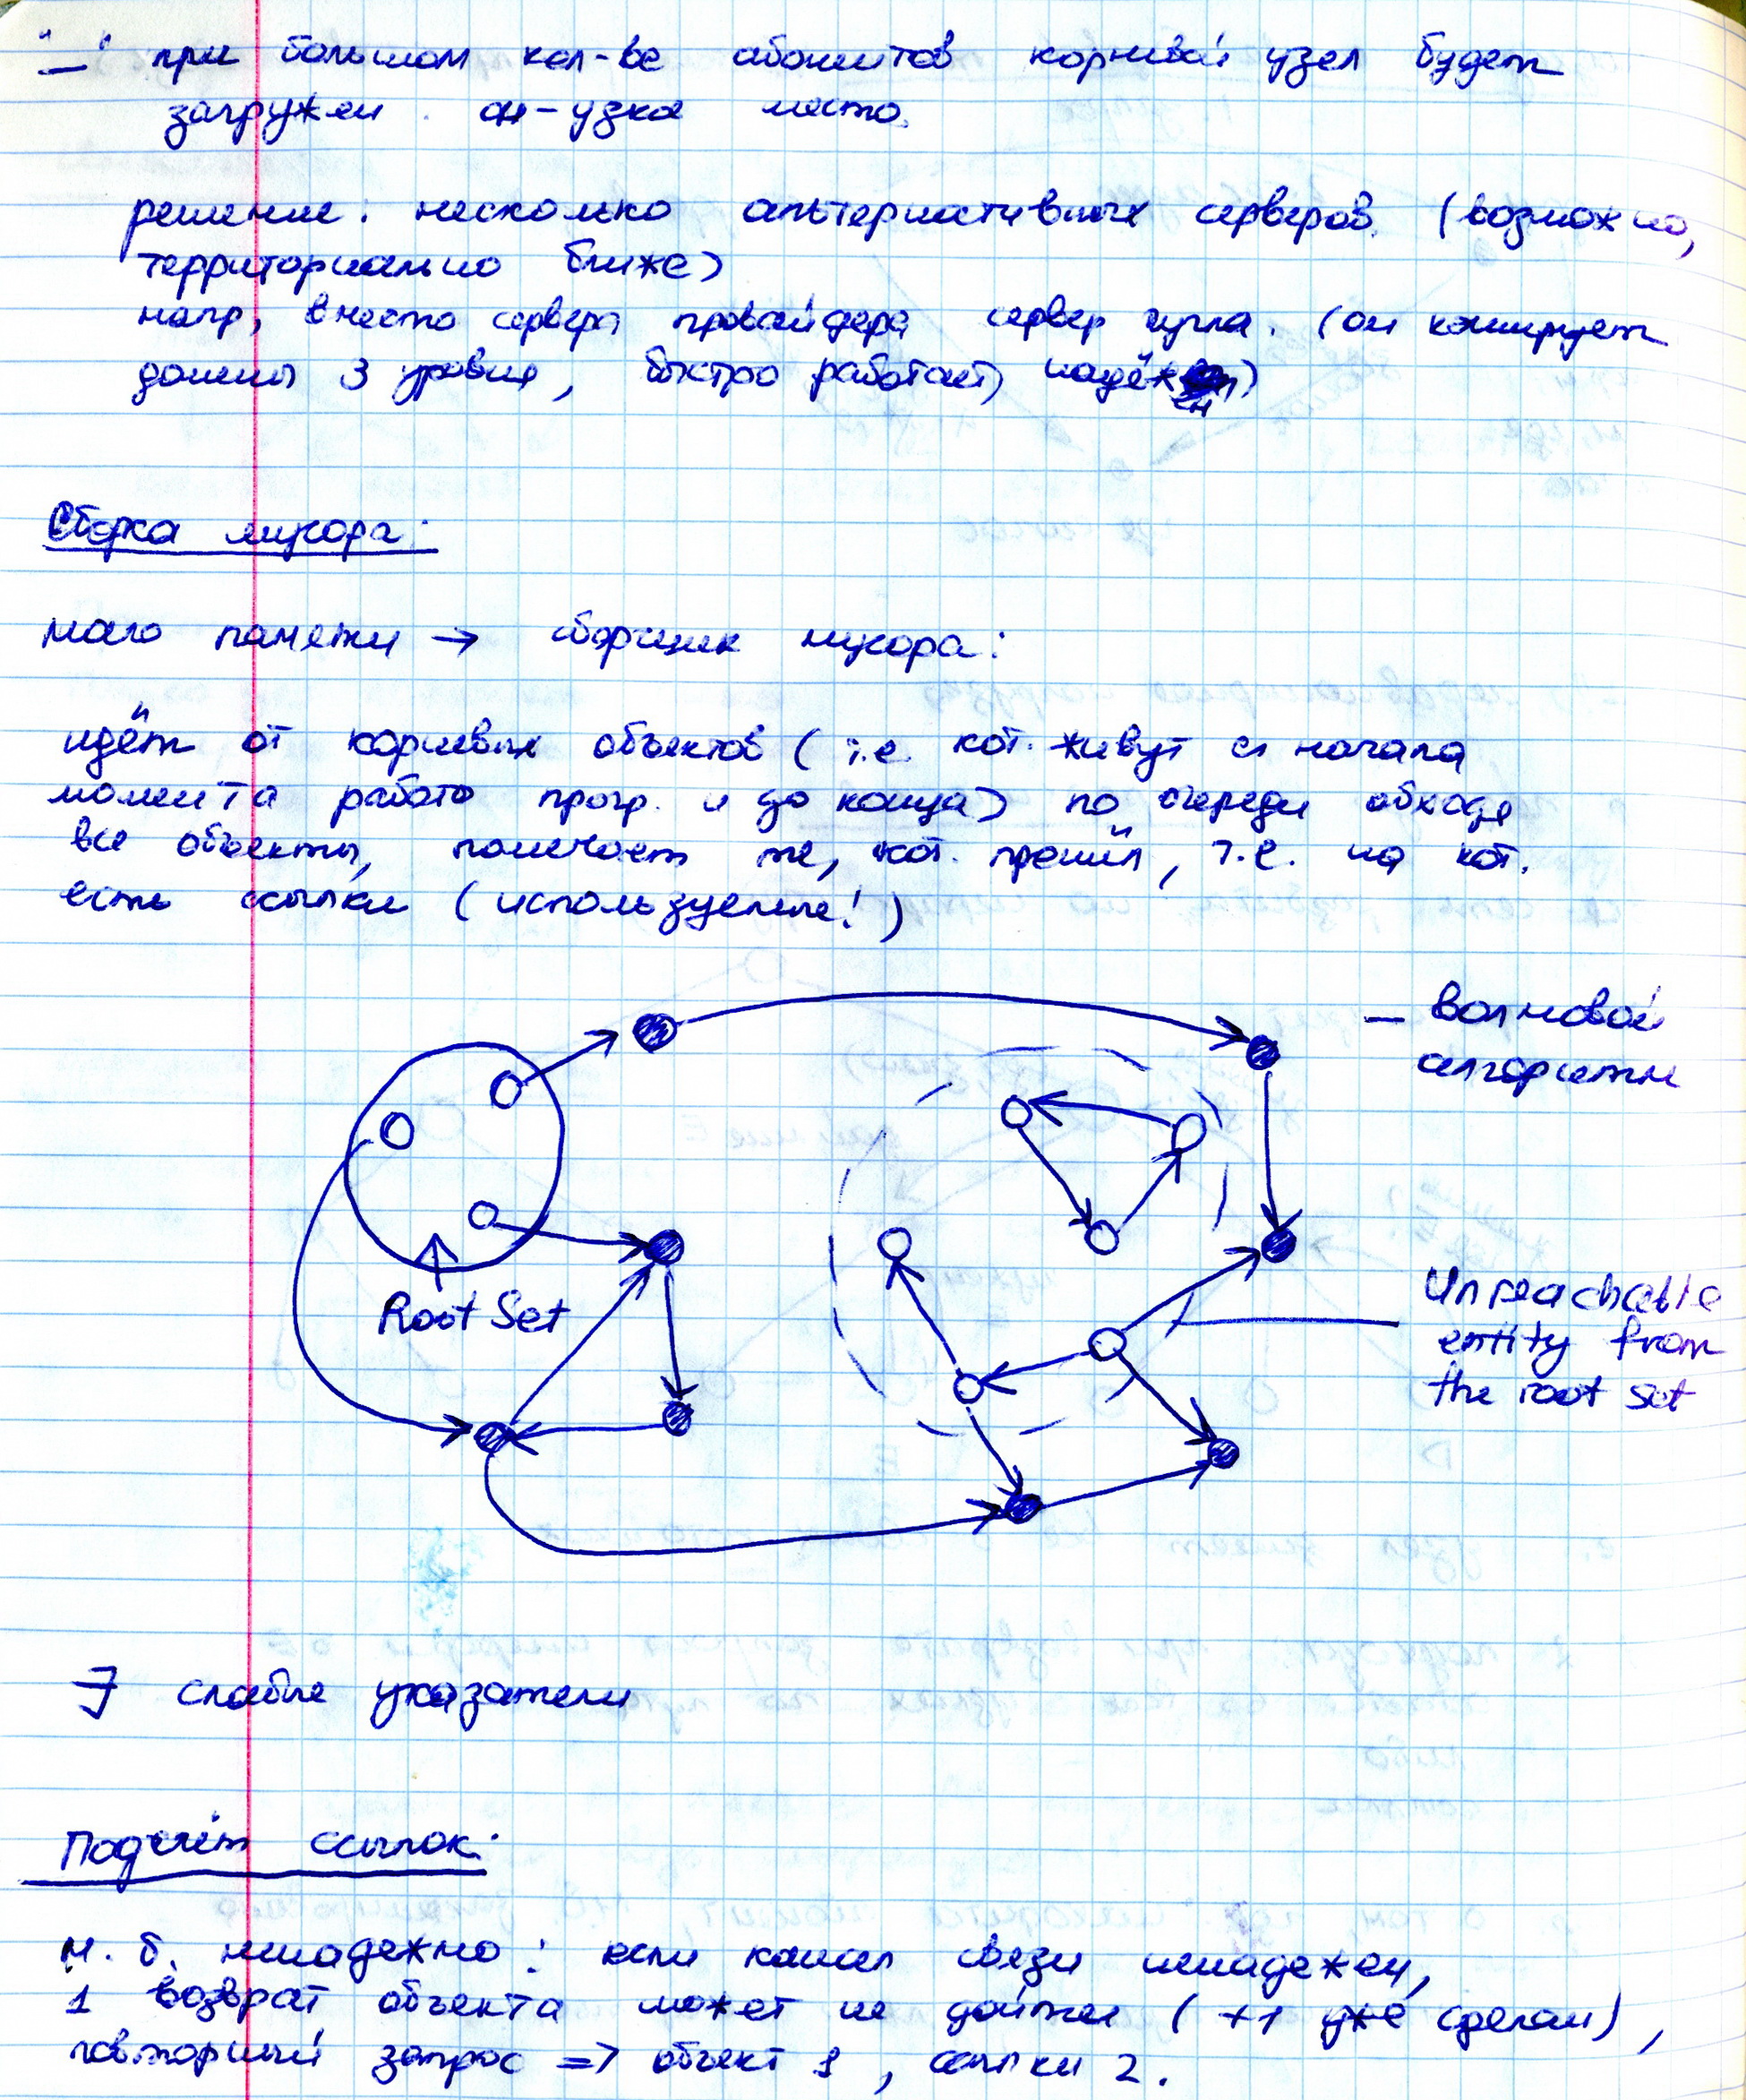 "–" при большом кол-ве абонентов корневой узел будет
загружен. он – узкое место.
решение: несколько альтернативных серверов. (возможно,
территориально ближе)
напр, вместо сервера провайдера сервер гугла. (он кэширует
домены 3 уровня, быстро работает, надёжен)
Сборка мусора:
мало памяти → сборщик мусора:
идёт от корневых объектов (т.е. кот. живут с начала
момента работы прогр. и до конца) по очереди обходя
все объекты, помечает те, кот. прошёл, т.е. на кот.
есть ссылки (используемые!)
– волновой
алгоритм
Root Set
Unreachable
entity from
the root set
∃ слабые указатели
Подсчёт ссылок:
м. б. ненадежно: если канал связи ненадежен,
1 возврат объекта может не дойти (+1 уже сделан),
повторный запрос => объект 1, ссылки 2.